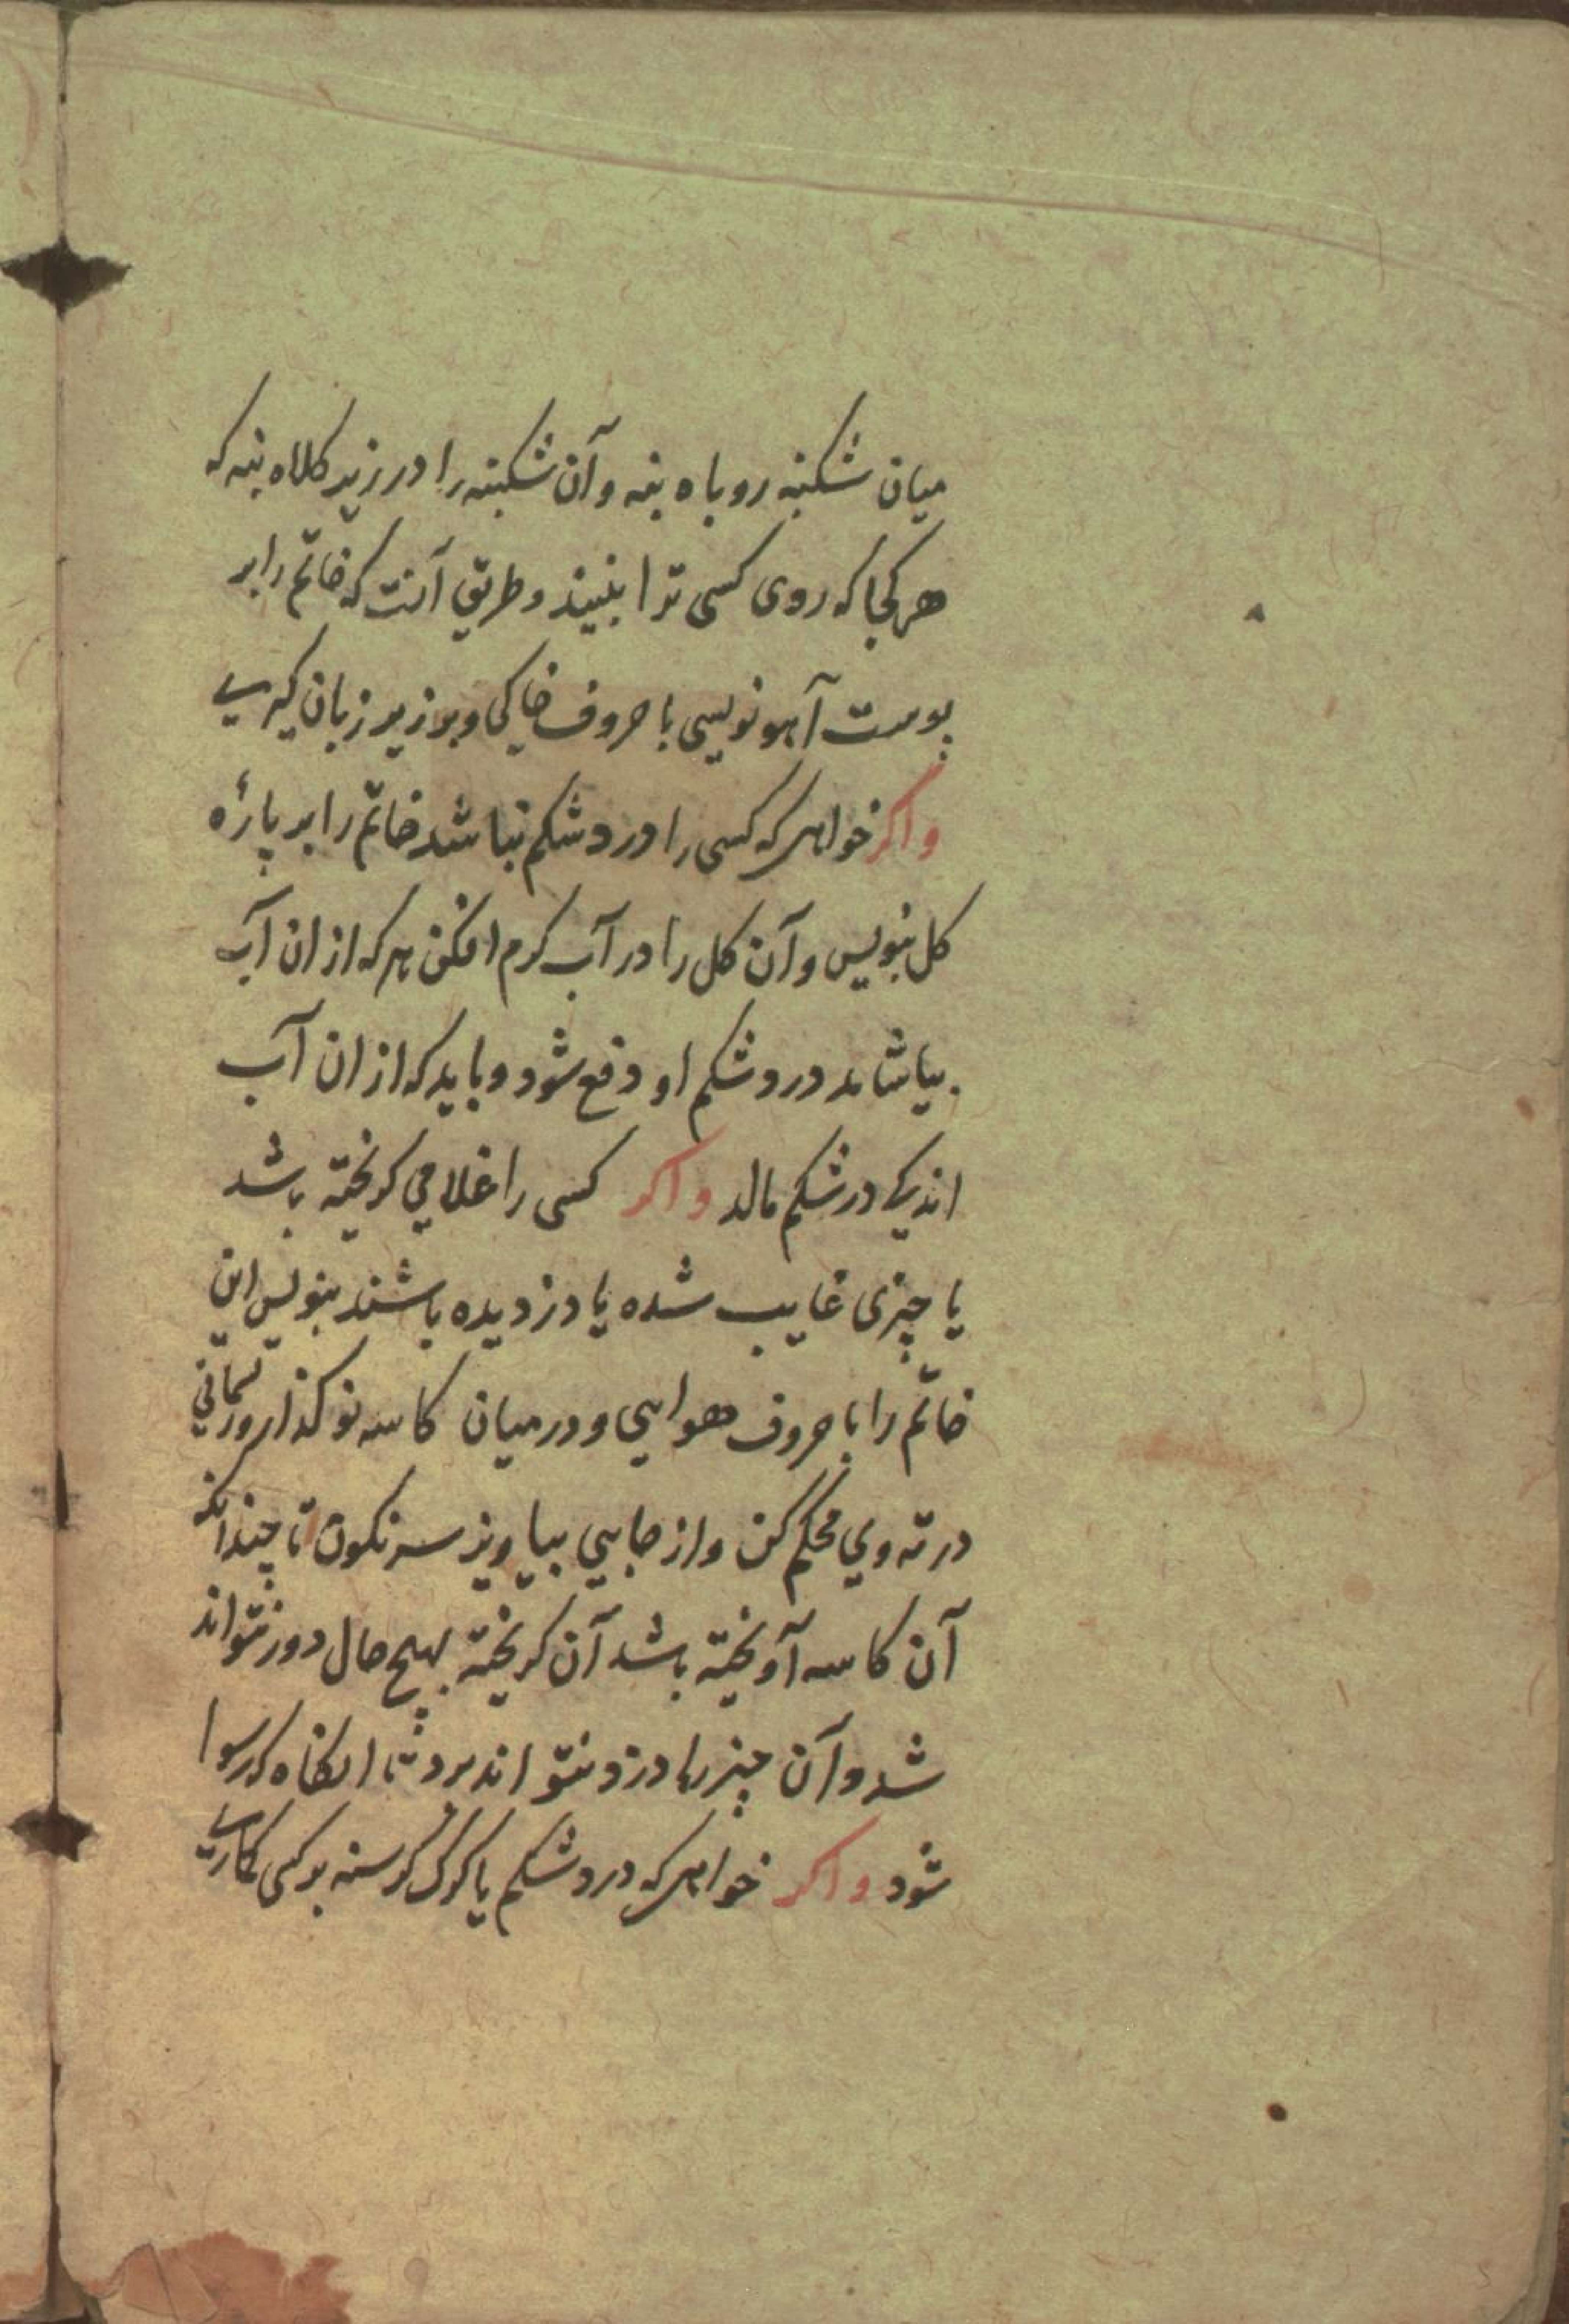 میان شکنبه روباه بنه وآن شکنبه را در زیر کلاه بنه که
هر کجا که روی کسی ترا نبیند و طریق آنست که خاتم را بر
پوست آهو نویسی با حروف خاکی و بر زیر زبان گیری
واکر خواهی که کسی را درد شکم نباشد خاتم را بر پارهٔ
کل بنویس وآن کل را در آب کرم افکن هر که از ان آب
بیاشامد درد شکم او دفع شود و باید که از ان آب
اندکی در شکم مالد واکر کسی را غلامی کریخته باشد
یا چیزی غایب شده یا دزدیده باشند بنویس این
خاتم را با حروف هوایی و در میان کاسه نو کذار وریسمانی
در ته وی محکم کن واز جایی بیاویز سرنکون تا چندانکه
آن کاسه آویخته باشد آن کریخته بهیچ حال دور نتواند
شد وآن چیز را دزد نتواند برد تا انکاه که رسوا
شود واکر خواهی که درد شکم یا کرک کرسنه بر کسی کماری